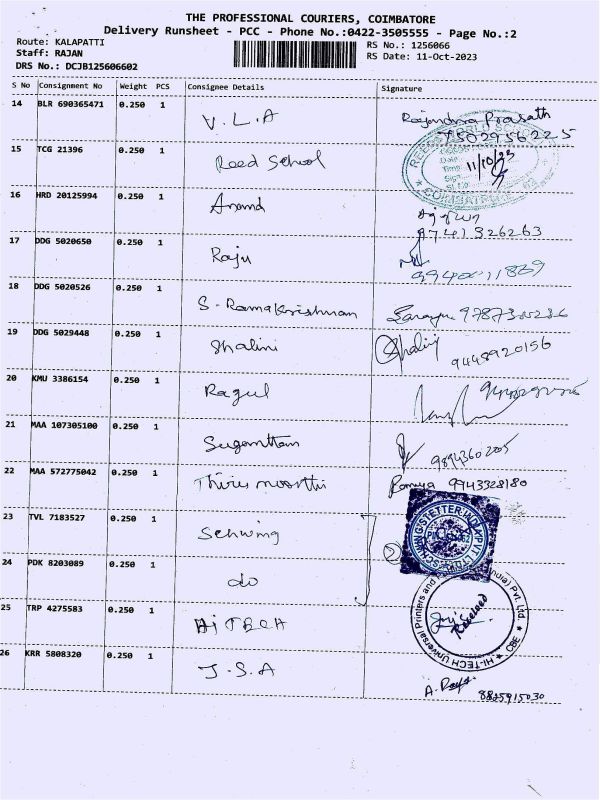 THE PROFESSIONAL COURIERS, COIMBATORE
Delivery Runsheet - PCC - Phone No.:0422-3505555 - Page No.:2
Route: KALAPATTI
Staff: RAJAN
DRS No.: DCJB125606602
RS No.: 1256066
RS Date: 11-Oct-2023
S No Consignment No Weight PCS Consignee Details Signature
14 BLR 690365471 0.250 1 V.L.A Rajendra Prasath
7502956225
15 TCG 21396 0.250 1 Reed School
REED WORLD SCHOOL
Date 11/10/23
Time
Sign
COIMBATORE
16 HRD 20125994 0.250 1 Anand
9741326263
17 DDG 5020650 0.250 1 Raju
18 DDG 5020526 0.250 1 S. Ramakrishnan
19 DDG 5029448 0.250 1 Shalini Shalini
9448920156
20 KMU 3386154 0.250 1 Ragul
21 MAA 107305100 0.250 1 Suganthan
9894360205
22 MAA 572775042 0.250 1 Thirumoorthi Ramya 9943328180
23 TVL 7183527 0.250 1 Schwing
SCHWING STETTER INDIA PVT LTD
24 PDK 8203089 0.250 1 do
25 TRP 4275583 0.250 1 Hi TECH
HI-TECH Universal Printers and (India) Pvt. Ltd. CBE
Received
26 KRR 5808320 0.250 1 J.S.A
8825915030